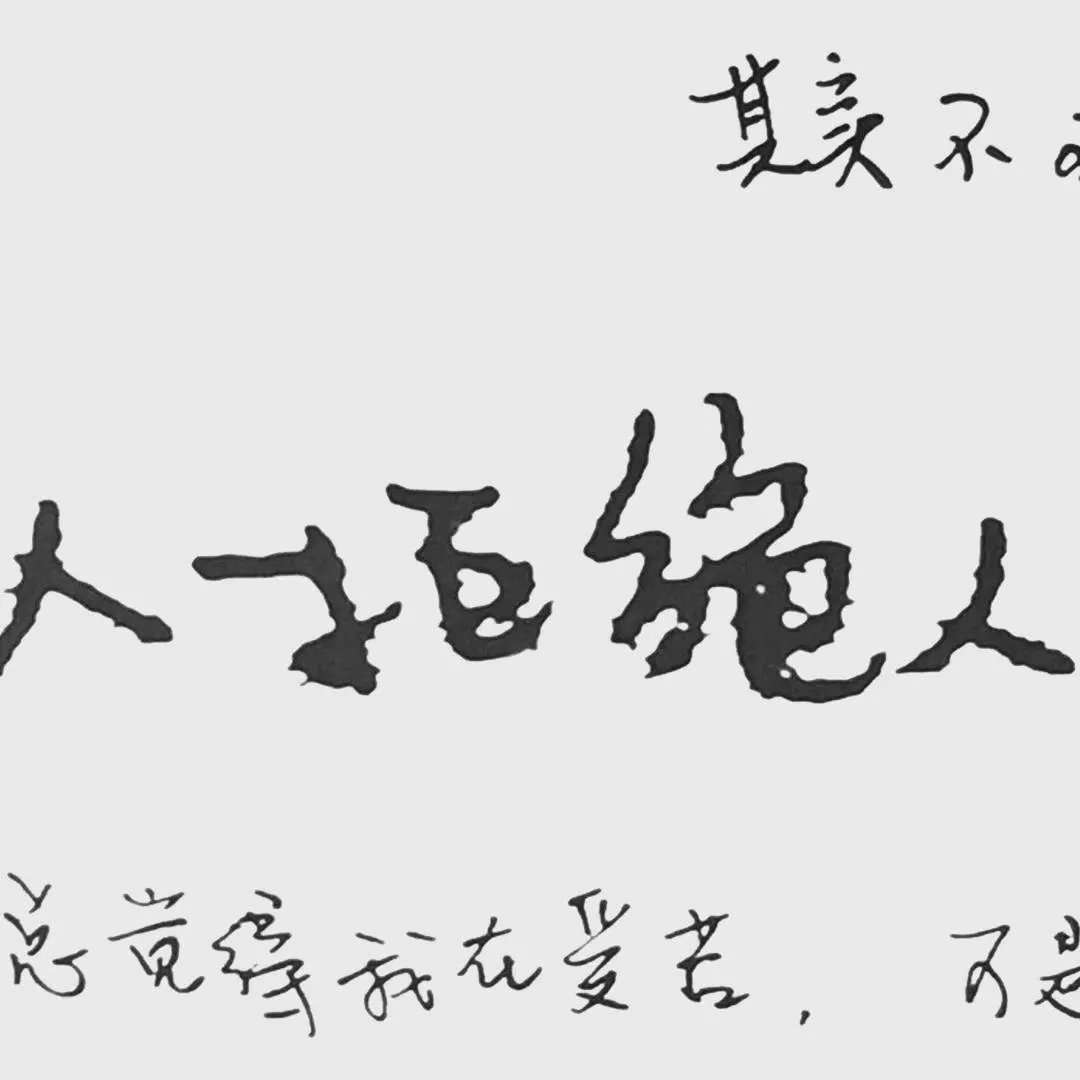 其实不
人拒绝人
总觉得我在受苦, 可是